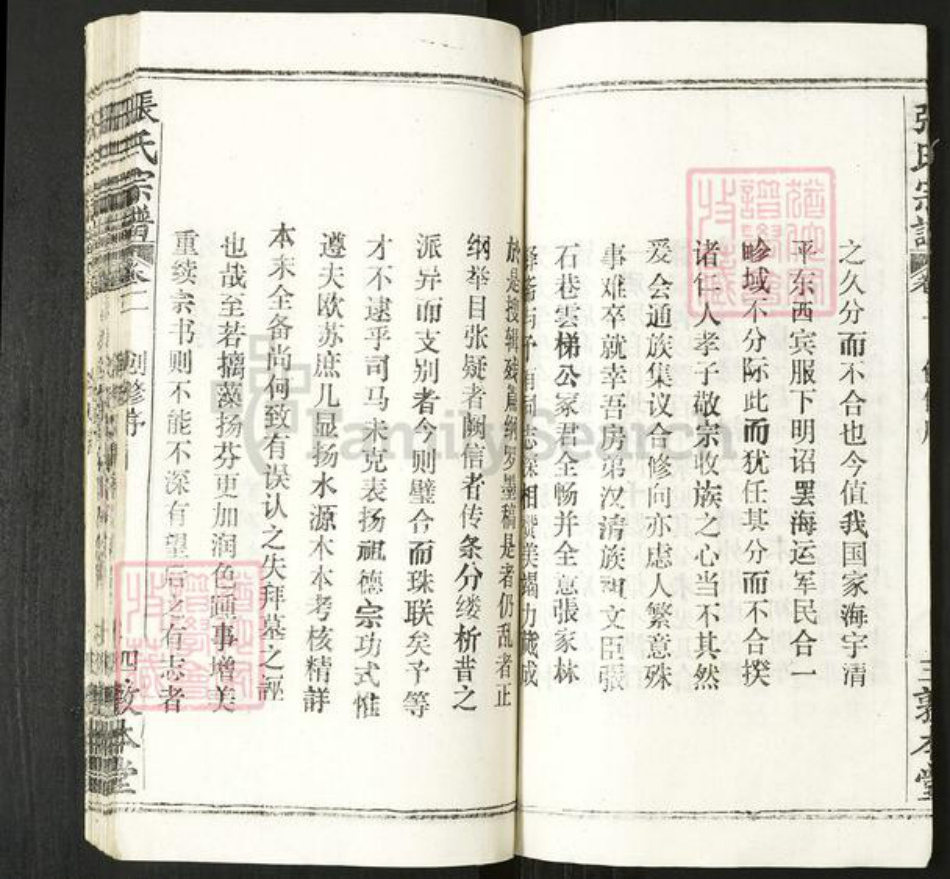 之久分而不合也今值我国家海宇清
平东西宾服下明诏罢海运军民合一
畛域不分际此而犹任其分而不合揆
诸仁人孝子敬宗收族之心当不其然
爰会通族集议合修向亦虑人繁意殊
事难卒就幸吾房弟汉清族
文臣張
石巷雲梯公冢君全畅并全意張家林
与予有同志深相
美竭力
成
於是搜辑残篇纲罗墨稿是者仍乱者正
纲举目张疑者阙信者传条分缕析昔之
派异而支别者今则璧合而珠联矣予等
才不逮乎司马未克表扬祖德宗功式惟
遵夫欧苏庶几显扬水源木本考核精詳
本末全备尚何致有误认之失拜墓之誣
也哉至若摛藻扬芬更加润色踵事增美
重续宗书则不能不深有望后之有志者
張氏宗譜
卷二
创修序
四
敦本堂
張氏宗譜
三
敦本堂
FamilySearch